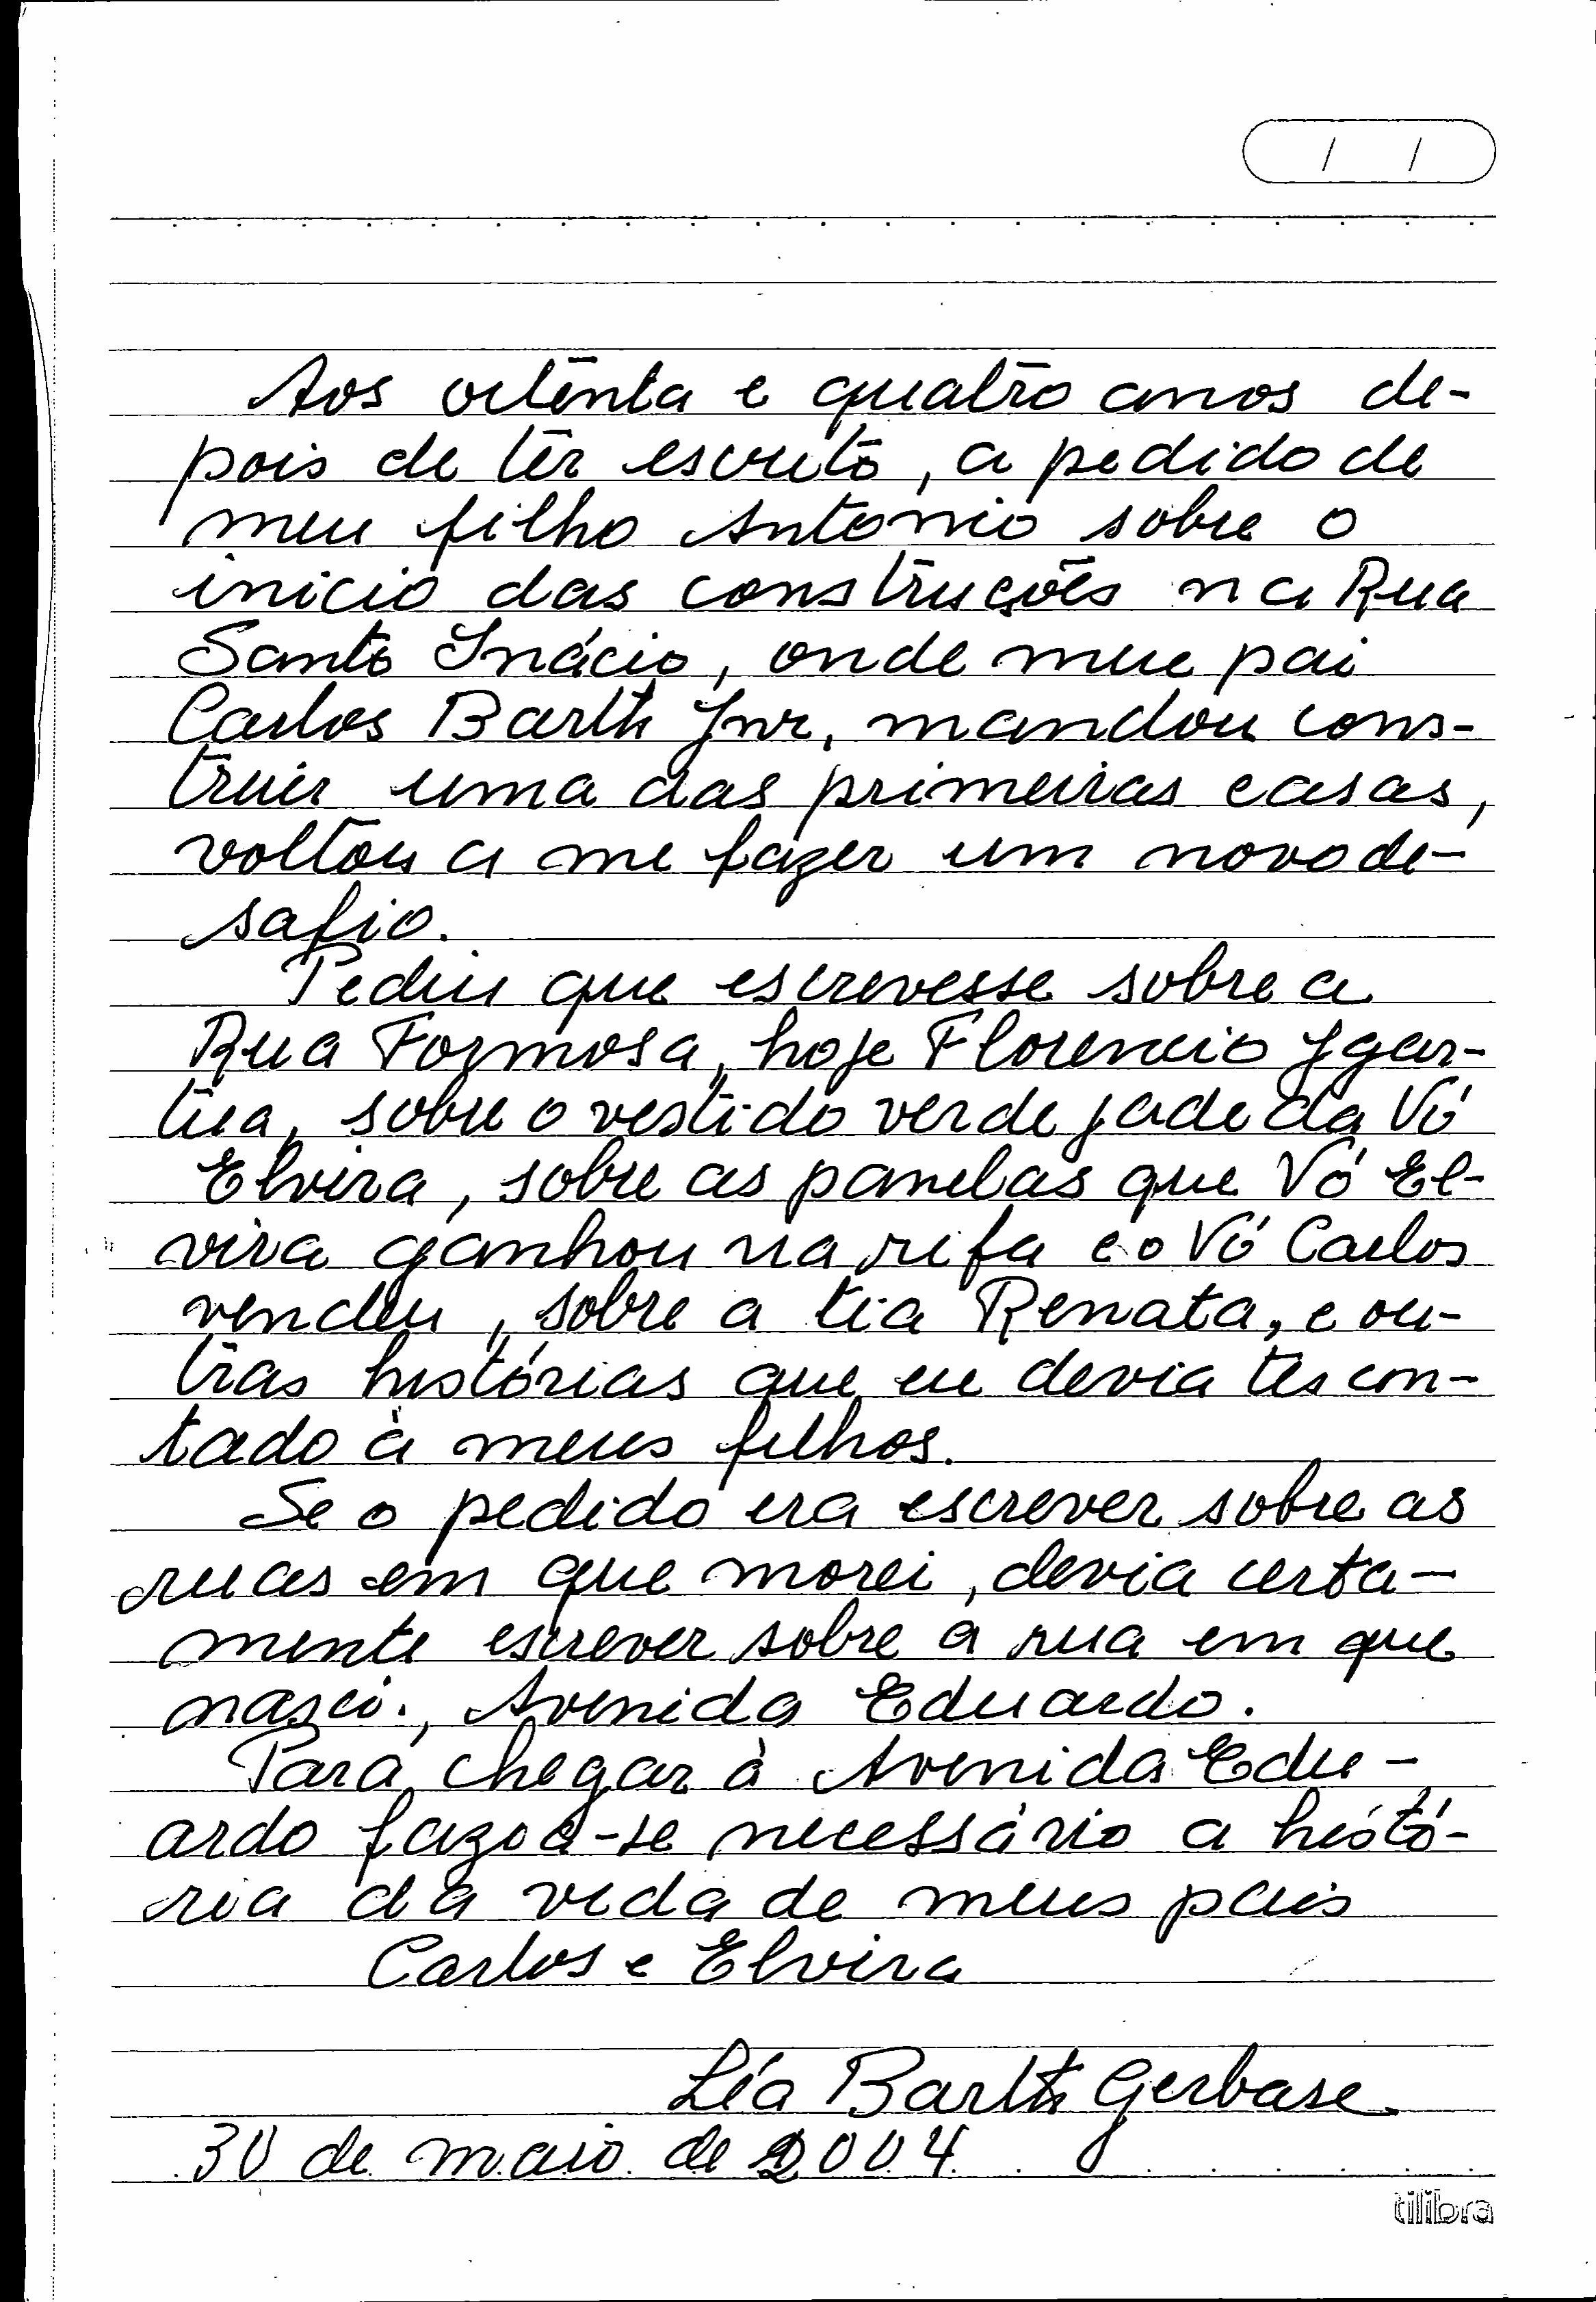 / /
Aos oitenta e quatro anos de-
pois de ter escrito, a pedido de
meu filho Antonio sobre o
inicio das construções na Rua
Santo Inácio, onde meu pai
Carlos Barth Jnr, mandou cons-
truir uma das primeiras casas,
voltou a me fazer um novo de-
safio.
Pediu que escrevesse sobre a
Rua Formosa, hoje Florencio Ygar-
tua, sobre o vestido verde jade da Vó
Elvira, sobre as panelas que Vó El-
vira ganhou na rifa e o Vô Carlos
vendeu, sobre a tia Renata, e ou-
tras histórias que eu devia ter con-
tado à meus filhos.
Se o pedido era escrever sobre as
ruas em que morei, devia certa-
mente escrever sobre a rua em que
nasci., Avenida Eduardo.
Para chegar à Avenida Edu-
ardo faz-se necessário a histó-
ria da vida de meus pais
Carlos e Elvira
Léa Barth Gerbase
30 de maio de 2004
tilibra